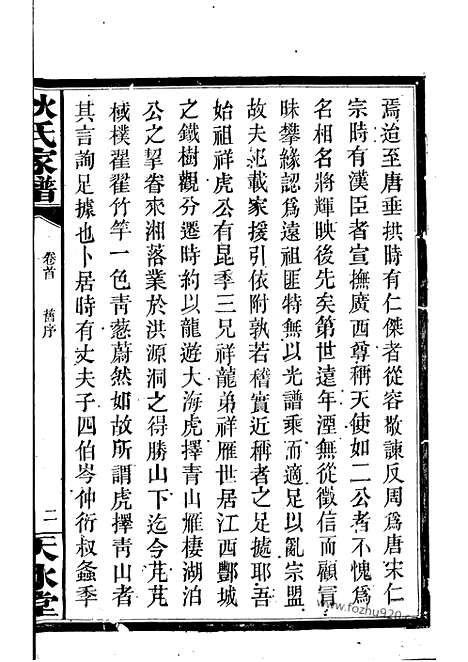 焉迨至唐垂拱時有仁傑者從容敢諫反周爲唐宋仁
宗時有漢臣者宣撫廣西尊稱天使如二公者不愧爲
名相名將輝映後先矣第世遠年湮無從徵信而顧冐
昧攀緣認爲遠祖匪特無以光譜乘而適足以亂宗盟
故夫汜載家援引依附孰若稽實近稱者之足㨿耶吾
始祖祥虎公有昆季三兄祥龍弟祥雁世居江西酆城
之鐵樹觀分遷時約以龍遊大海虎擇青山雁棲湖山
公之挈眷來湘落業於洪源洞之得勝山下迄今芃芃
棫樸翟翟竹竿一色靑葱蔚然如故所謂虎擇靑山者
其言詢足據也卜居時有丈夫子四伯岑仲衍叔螽季
狄氏家譜
卷首
舊序
二
天水堂
www.fozhu920.com